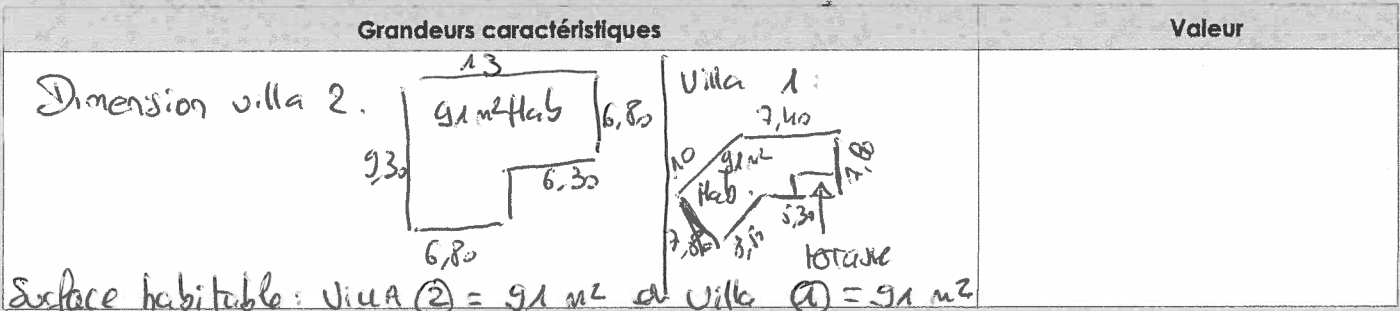 Grandeurs caractéristiques
Valeur
Dimension villa 2.
13
91 m² Hab
6,80
9,30
6,30
6,80
Villa 1 :
7,40
10
91 m²
Hab.
7,80
5,30
7,80
3,50
terrasse
Surface habitable : VillA ② = 91 m² et villa ① = 91 m²